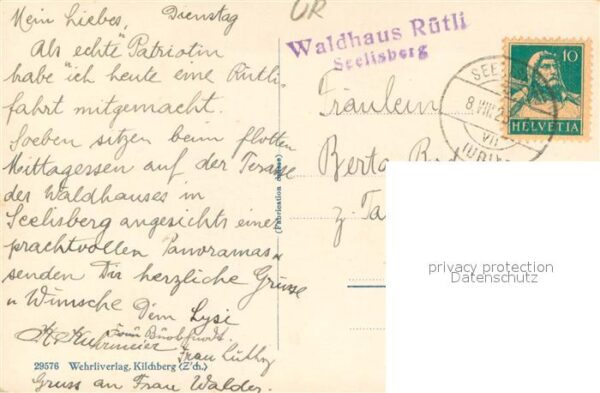 Mein Liebes, Dienstag
Als "echte" Patriotin
habe ich heute eine Rütli-
fahrt mitgemacht.
Soeben sitzen beim flotten
Mittagessen auf der Terasse
des Waldhauses in
Seelisberg angesichts eines
prachtvollen Panoramas
senden Dir herzliche Grüsse
u Wünsche Dein Lysi
Frau Lüthy
29576 Wehrliverlag, Kilchberg (Z'ch.)
Gruss an Frau Walder.
(Fabrication suisse)
UR
Waldhaus Rütli
Seelisberg
Fräulein
Berta
z.
10
HELVETIA
SEE
8. VIII. 2
VII
(URI)
privacy protection
Datenschutz